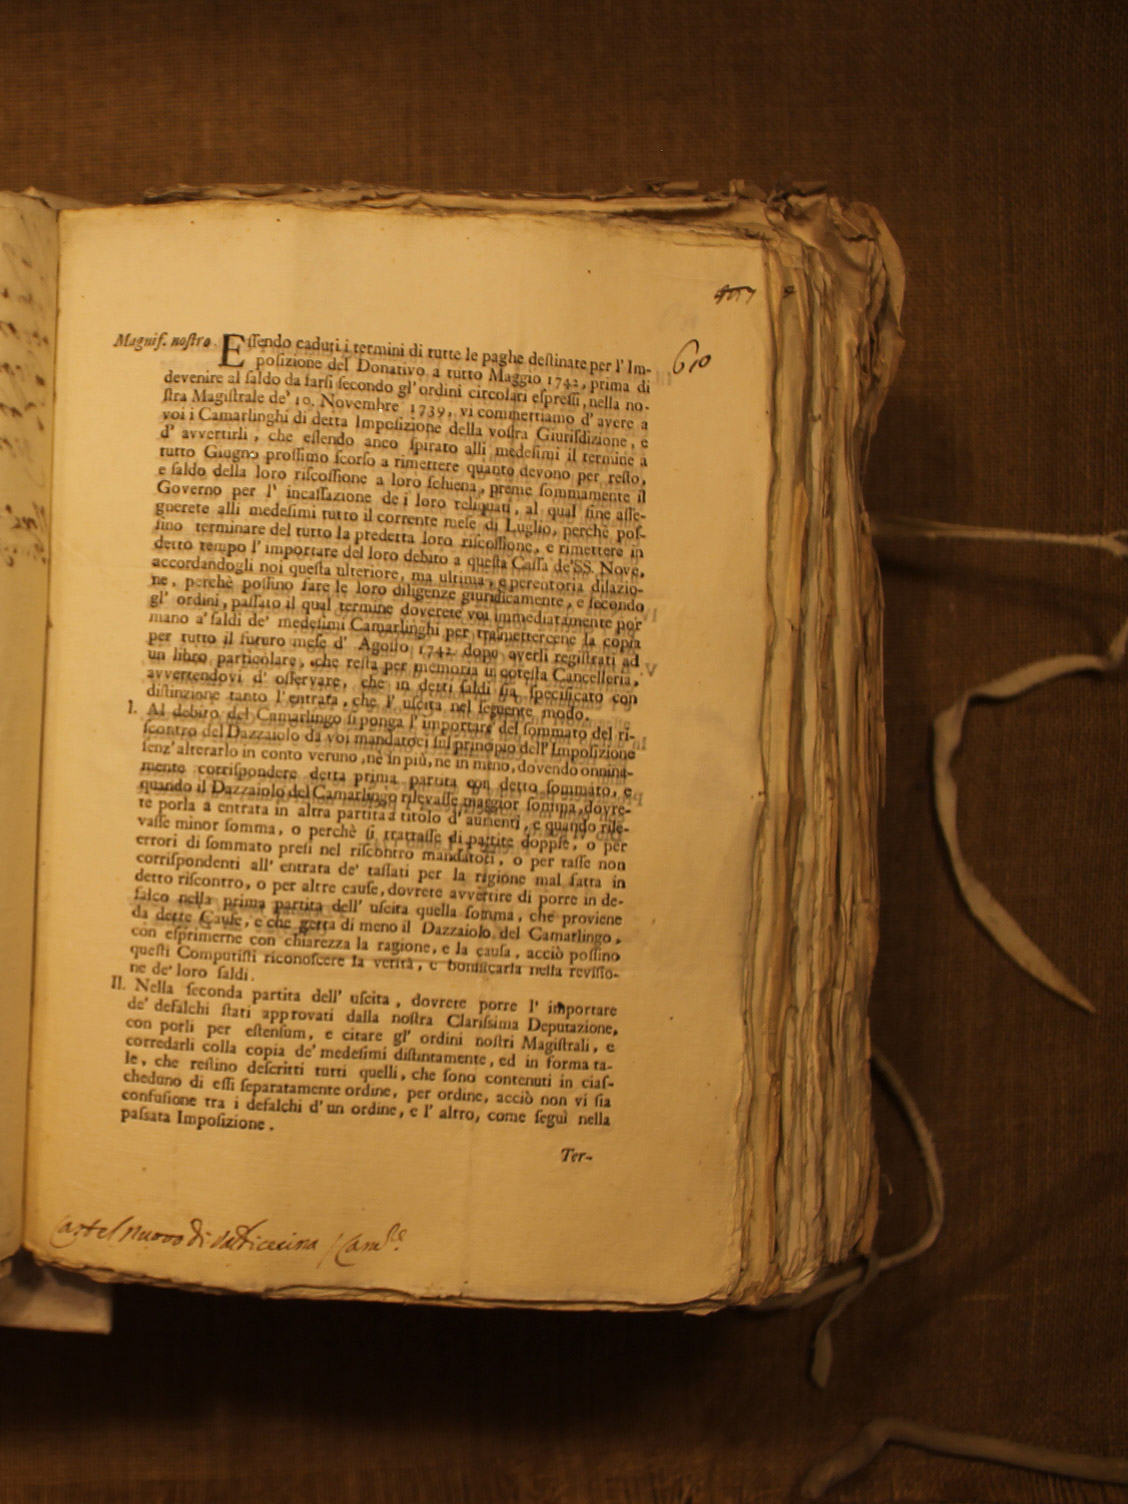 610
Magnif. nostro. Essendo caduti i termini di tutte le paghe destinate per l' Im-
posizione del Donativo a tutto Maggio 1742, prima di
devenire al saldo da farsi secondo gl' ordini circolari espressi, nella no-
stra Magistrale de' 10. Novembre 1739, vi commettiamo d' avere a
voi i Camarlinghi di detta Imposizione della vostra Giurisdizione, e
d' avvertirli, che essendo anco spirato alli medesimi il termine a
tutto Giugno prossimo scorso a rimettere quanto devono per resto,
e saldo della loro riscossione a loro schiena, preme sommamente il
Governo per l' incassazione de i loro reliquati, al qual fine asse-
gnerete alli medesimi tutto il corrente mese di Luglio, perchè pos-
sino terminare del tutto la predetta loro riscossione, e rimettere in
detto tempo l' importare del loro debito a questa Cassa de' SS. Nove,
accordandogli noi questa ulteriore, ma ultima, e perentoria dilazio-
ne, perchè possino fare le loro diligenze giuridicamente, e secondo
gl' ordini, passato il qual termine doverete voi immediatamente por
mano a' saldi de' medesimi Camarlinghi per trasmettercene la copia
per tutto il futuro mese d' Agosto 1742. dopo averli registrati ad
un libro particolare, che resta per memoria in cotesta Cancelleria,
avvertendovi d' osservare, che in detti saldi sia specificato con
distinzione tanto l' entrata, che l' uscita nel seguente modo.
I. Al debito del Camarlingo si ponga l' importare del sommato del ri-
scontro del Dazzaiolo da voi mandatoci sul principio dell' Imposizione
senz' alterarlo in conto veruno, nè in più, ne in meno, dovendo onnina-
mente corrispondere detta prima partita con detto sommato, e
quando il Dazzaiolo del Camarlingo rilevasse maggior somma, dovre-
te porla a entrata in altra partita a titolo d' aumenti, e quando rile-
vasse minor somma, o perchè si trattasse di partite doppie, o per
errori di sommato presi nel riscontro mandatoci, o per tasse non
corrispondenti all' entrata de' tassati per la rigione mal fatta in
detto riscontro, o per altre cause, dovrete avvertire di porre in de-
falco nella prima partita dell' uscita quella somma, che proviene
da dette Cause, e che getta di meno il Dazzaiolo del Camarlingo,
con esprimerne con chiarezza la ragione, e la causa, acciò possino
questi Computisti riconoscere la verità, e bonificarla nella revisio-
ne de' loro saldi.
II. Nella seconda partita dell' uscita, dovrete porre l' importare
de' defalchi stati approvati dalla nostra Clarissima Deputazione,
con porli per estensum, e citare gl' ordini nostri Magistrali, e
corredarli colla copia de' medesimi distintamente, ed in forma ta-
le, che restino descritti tutti quelli, che sono contenuti in cias-
cheduno di essi separatamente ordine, per ordine, acciò non vi sia
confusione tra i defalchi d' un ordine, e l' altro, come seguì nella
passata Imposizione.
Ter-
Castel nuovo di valdicecina